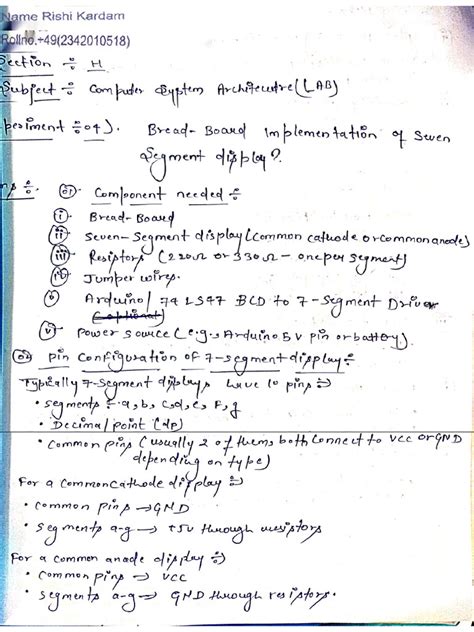 Name Rishi Kardam
Rollno.-+49(2342010518)
Section ÷ H
Subject ÷ Computer System Architecutre (LAB)
periment ÷ 04). Bread-Board Implementation of Seven
Segment display?
ns ÷ 01 Component needed ÷
(i) Bread-Board
(ii) Seven-Segment display (Common cathode or common anode)
(iii) Resistors (220Ω or 330Ω - one per segment)
(iv) Jumper wires.
Arduino / 74LS47 BCD to 7-Segment Driver
(optional)
Power source (e.g., Arduino 5v pin or battery).
02 pin configuration of 7-segment display ÷
Typically 7-segment displays have 10 pins ÷
• segments ÷ a, b, c, d, e, F, g
• Decimal point (dp)
• common pins (usually 2 of them, both connect to vcc or GND
depending on type)
For a common cathode display ÷
• common pins → GND
• segments a-g → +5v through resistors
For a common anode display ÷
• common pins → vcc
• segments a-g → GND through resistors.